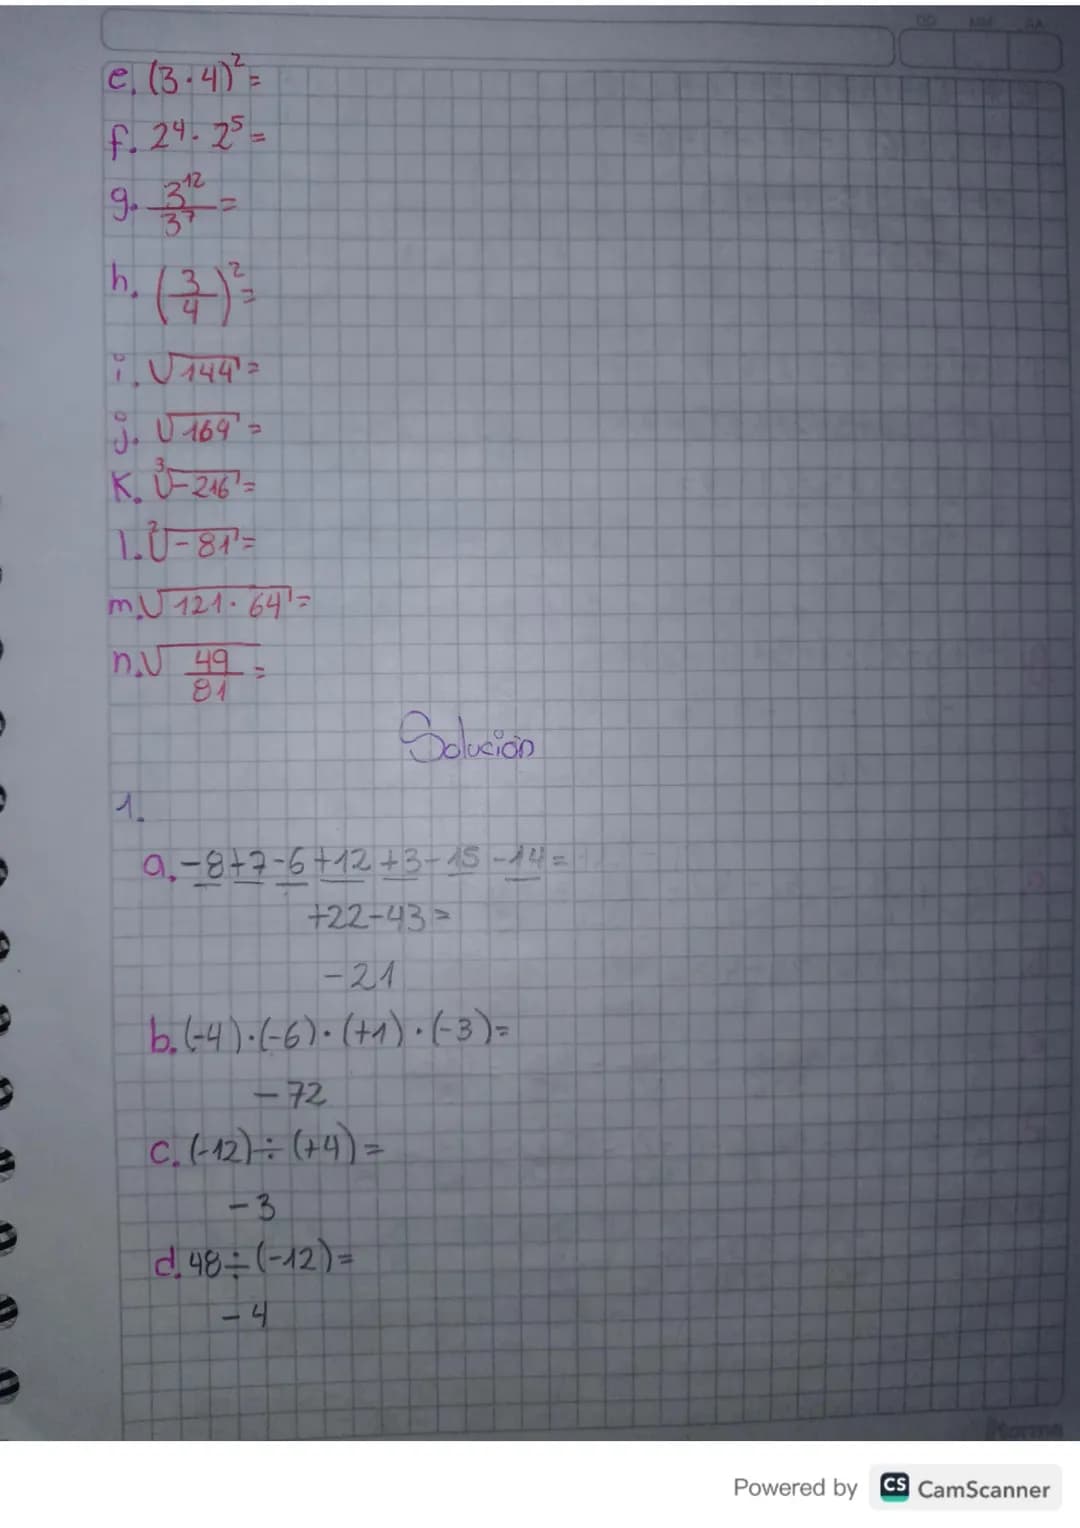 DD MM AA
e. (3·4)²=
f. 2⁴· 2⁵=
g. 3¹²/3⁷=
h. (3/4)²=
i. √144=
j. √169=
K. ³√-216=
l. ²√-81=
m. √121·64=
n. √49/81=
Solución
1.
a. -8+7-6+12+3-15-14=
+22-43=
-21
b. (-4)·(-6)·(+1)·(-3)=
-72
c. (-12)÷(+4)=
-3
d. 48÷(-12)=
-4
norma
Powered by CS CamScanner